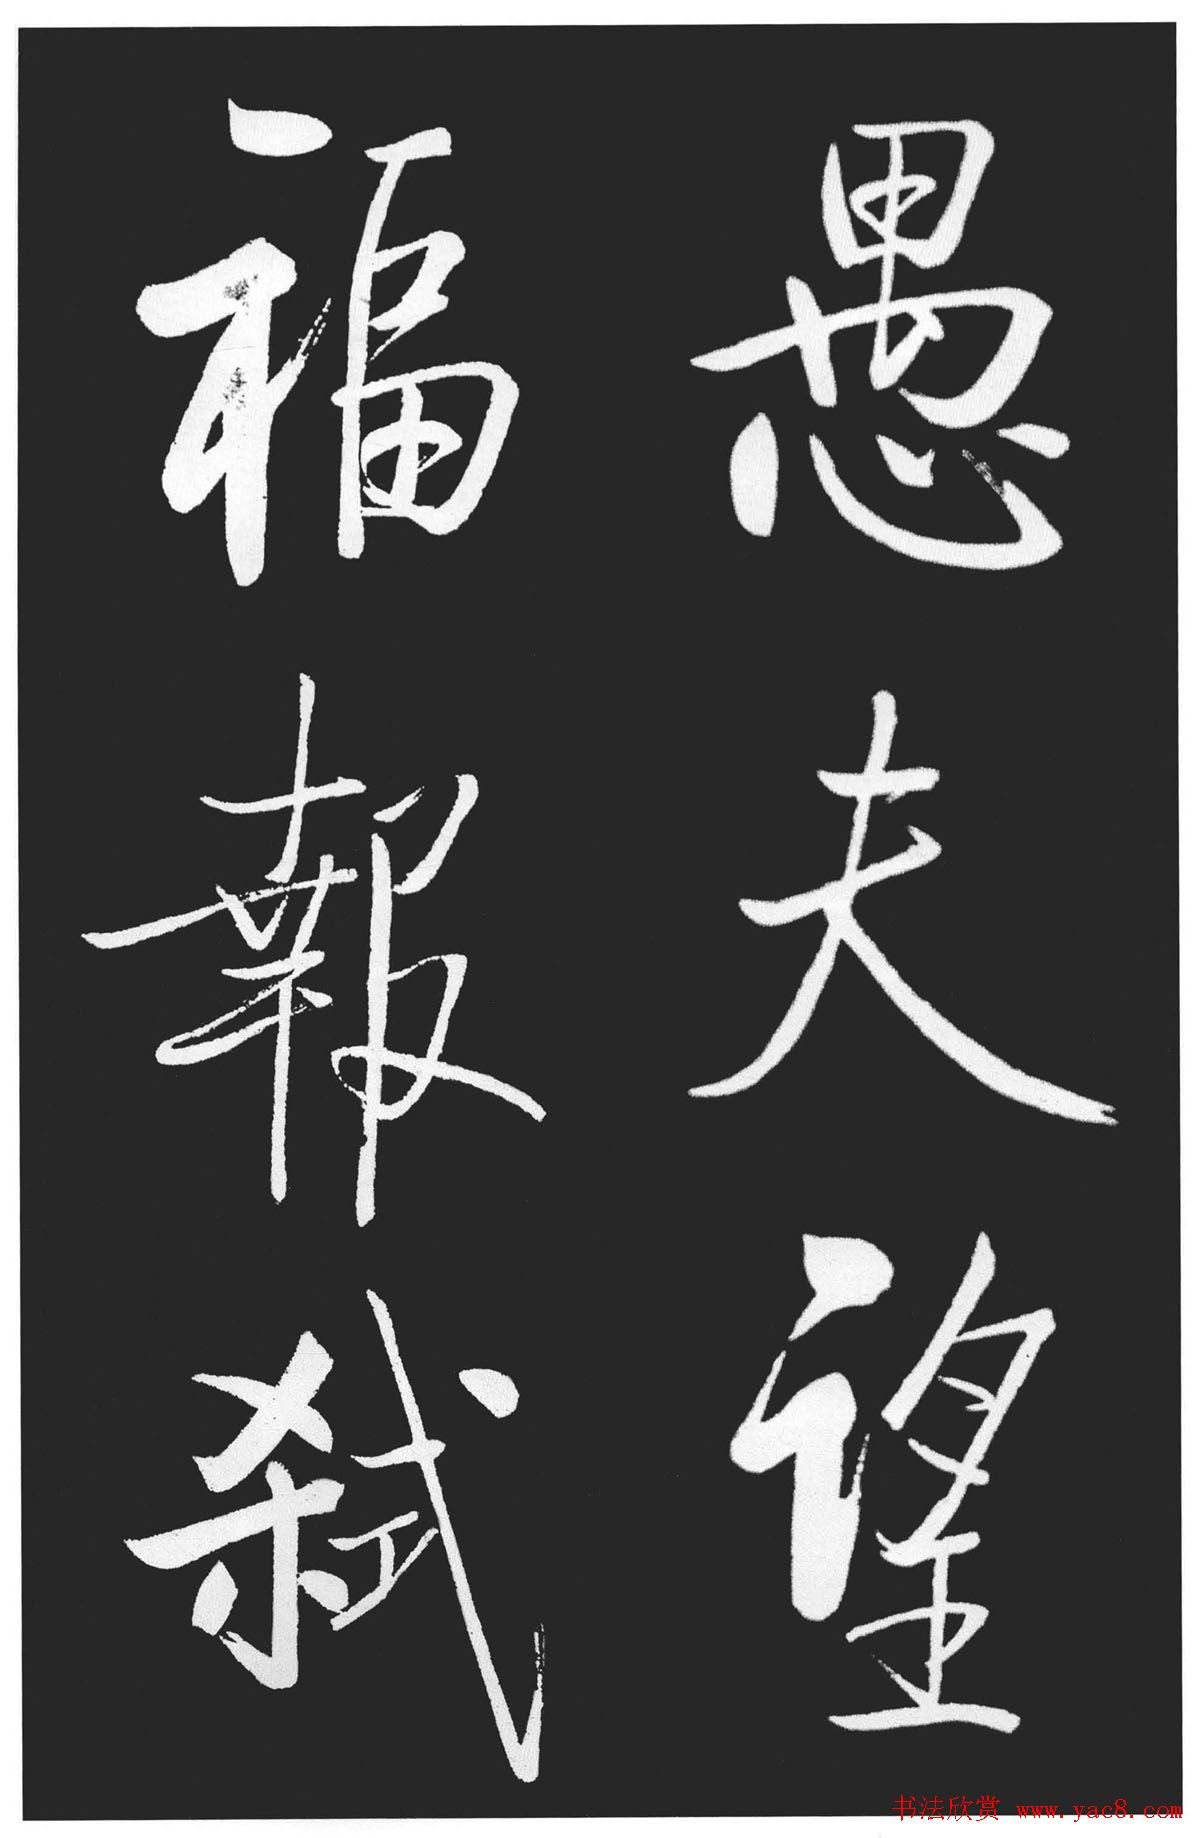 愚夫望
福報弑
书法欣赏 www.yac8.com